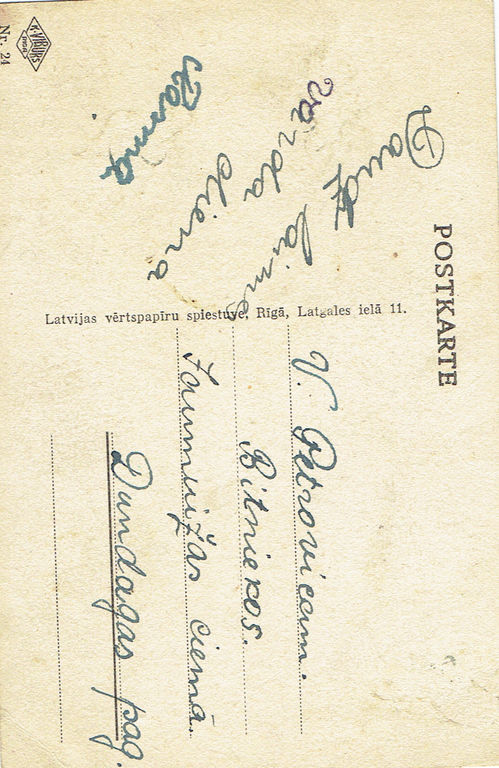 POSTKARTE
Daudz laimes
vārda
diena
V. Petrovicam.
Bitniekos.
Jaunmuižas ciemā.
Dundagas pag.
Latvijas vērtspapīru spiestuve, Rīgā, Latgales ielā 11.
K. VIBURS
RIGA
Nr. 24